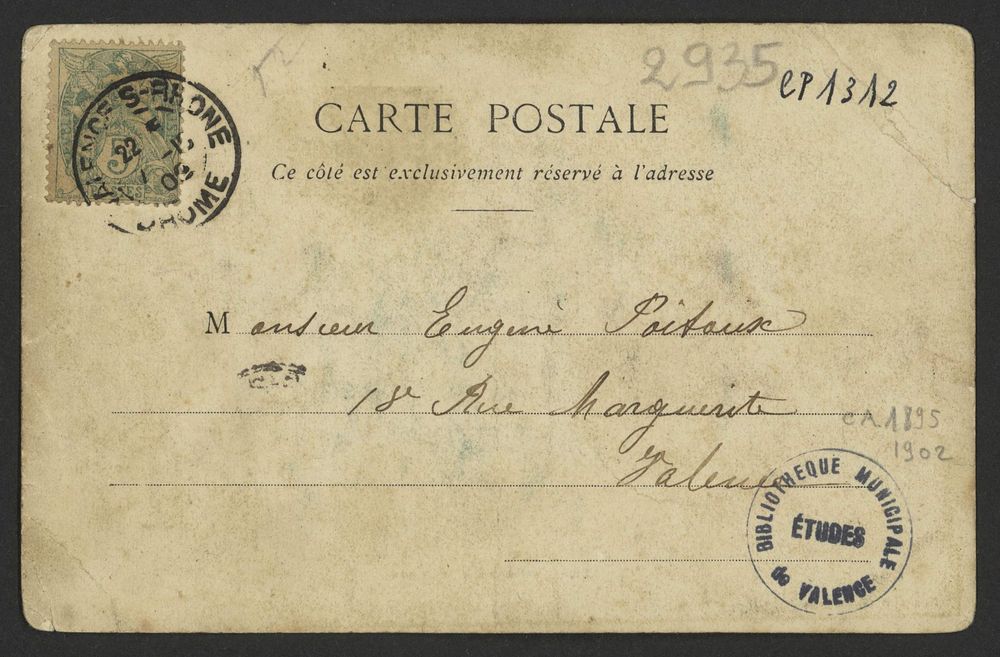 2935
CP1312
VALENCE S-RHONE
22
02
DROME
5
CARTE POSTALE
Ce côté est exclusivement réservé à l'adresse
Monsieur Eugène Poitoux
18 Rue Marguerite
Valence
CA 1895
1902
BIBLIOTHEQUE MUNICIPALE
ÉTUDES
de VALENCE